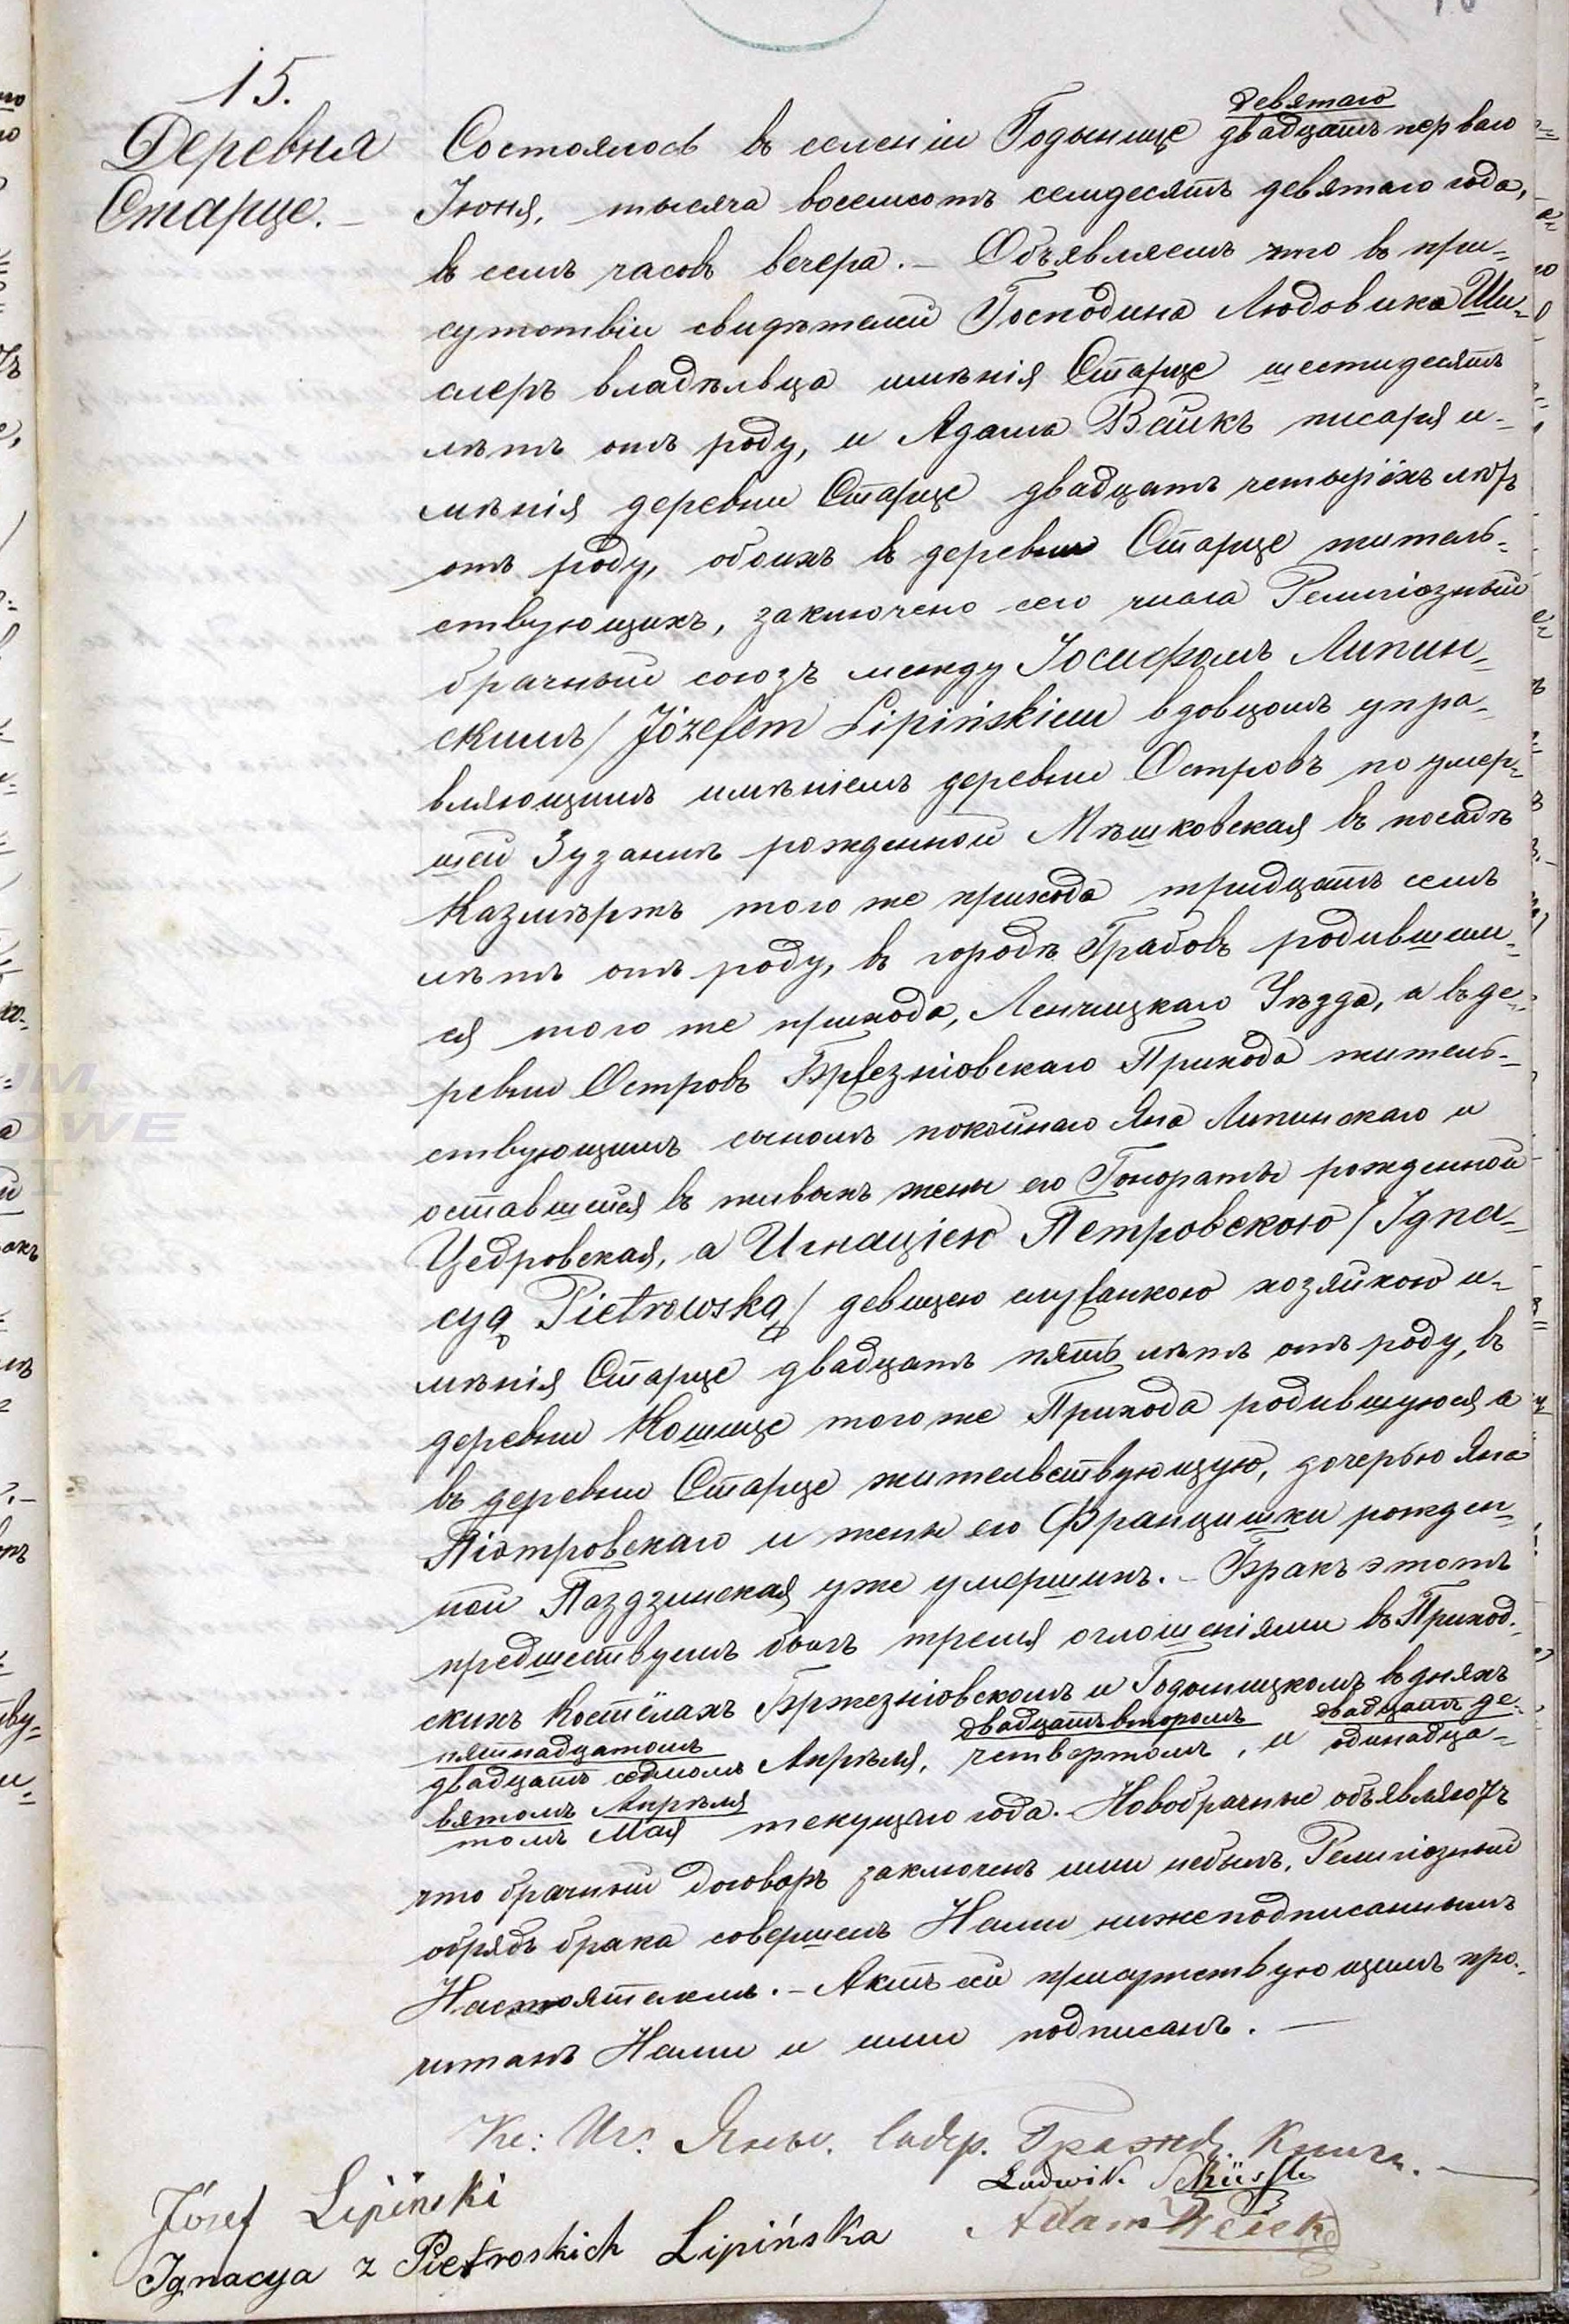 15.
Деревня
Старце. –
девятаго
Состоялось въ селеніи Годынице двадцать перваго
Іюня, тысяча восемсотъ семдесятъ девятаго года,
въ семъ часовъ вечера. – Объявляемъ что въ при-
сутствіи свидѣтелей Господина Людовика Ши-
слеръ владѣльца имѣнія Старце шестидесятъ
лѣтъ отъ роду, и Адама Вейкъ писаря и-
мѣнія деревни Старце двадцать четырёхъ лѣтъ
отъ роду, обоихъ въ деревни Старце житель-
ствующихъ, заключено сего числа Религіозный
брачный союзъ между Іосифомъ Липин-
скимъ / Józefem Lipińskiem вдовцомъ упра-
вляющимъ имѣніемъ деревни Островъ по умер-
шей Зузаннѣ рожденной Мѣшковская въ посадѣ
Казмѣржъ того же прихода тридцать семъ
лѣтъ отъ роду, въ городѣ Грабовъ родившими-
ся того же прихода, Ленчицкаго Уѣзда, а въ де-
ревни Островъ Бржезніовскаго Прихода житель-
ствующимъ сыномъ покойнаго Яна Липинскаго и
оставшейся въ живыхъ жены его Гонораты рожденной
Цедровская, а Игнаціею Петровскою / Igna-
cyą Pietrowską / девицею служанкою хозяйкою и-
мѣнія Старце двадцать пять лѣтъ отъ роду, въ
деревни Кошице того же Прихода родившуюся а
въ деревни Старце жительствующую, дочерью Яна
Піотровскаго и жены его Францишки рожден-
ной Паздзинская уже умершихъ. – Бракъ этотъ
предшествуемъ былъ тремя оглошеніями въ Приход-
скихъ Костёлахъ Бржезніовскомъ и Годыницкомъ въ дняхъ
пятнадцатомъ двадцать второмъ двадцать де-
двадцать седмомъ Апрѣля, четвертомъ, и одинадца-
вятомъ Апрѣля
томъ Мая текущаго года. – Новобрачные объявляютъ
что брачный договоръ заключенъ ими небылъ, Религіозный
обрядъ брака совершенъ Нами нижеподписаннымъ
Настоятелемъ. – Актъ сей присутствующимъ про-
читанъ Нами и ими подписанъ. –
Кс: Иг: Содер. Гражд. Книги. –
Ludwik
Józef Lipiński
Adam Weick
Ignacya z Pietroskich Lipińska